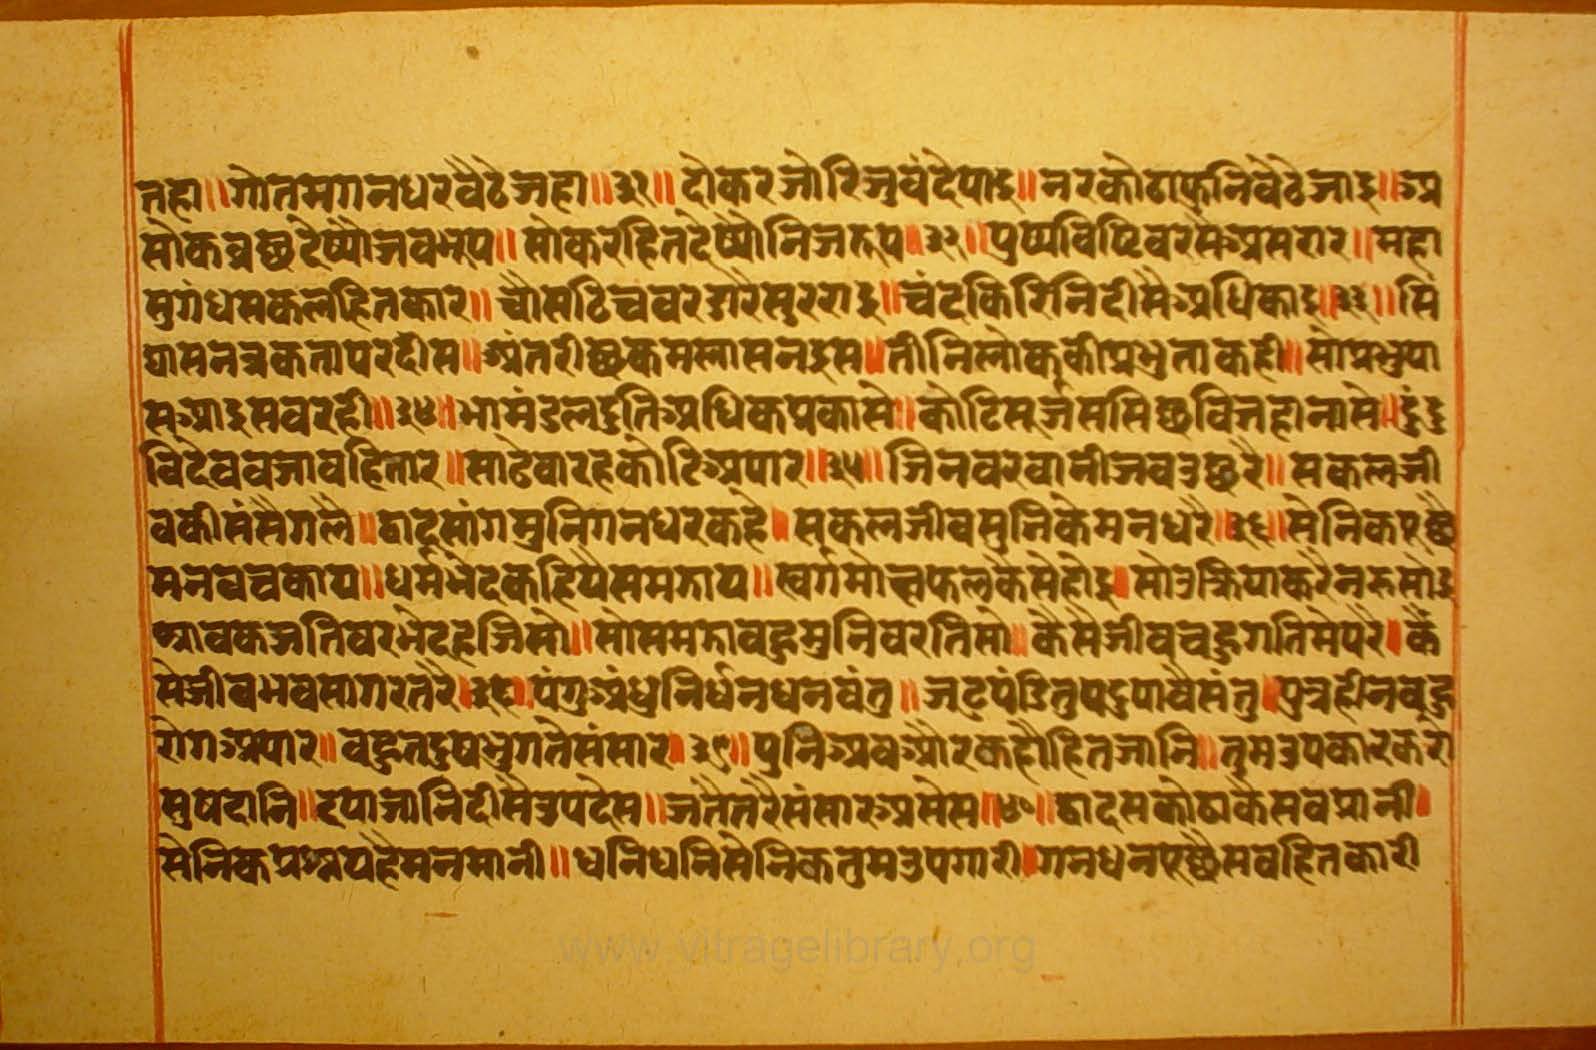 तहा॥गोतमगनधरवैठेजहा॥३१॥दोकरजोरिजुवंदेपाइ॥नरकोठाफुनिवेठेजाइ॥अ
सोकव्रछदेष्यौजवभूप॥सोकरहितदेष्यौनिजरूप॥३२॥पुष्पविष्टिवरसैअसरार॥महा
सुगंधसकलहितकार॥चौसठिचवरढारैसुरराइ॥चंदकिरिनिदीसैअधिकाइ॥३३॥सिं
घासनत्रकतापरदीस॥अंतरीछकमलासनइस॥तीनिलोककीप्रभुताकही॥सोप्रभुपा
सआइसवरही॥३४॥भामंडलदुतिअधिकप्रकासे॥कोटिसूर्जससिछविजहानासे॥दुंदु
विदेववजावहितार॥साढेवारहकोटिअपार॥३५॥जिनवरवानीजवउछरै॥सकलजी
वकीसंसैगलै॥द्वादसांगमुनिगनधरकहे॥सकलजीवसुनिकेमनधरै॥३६॥सेनिकपूछै
मनवचकाय॥धर्मभेदकहियैसमझाय॥स्वर्गमोक्षफलकैसेहोइ॥सोउक्रियाकरैनरुसोइ
श्रावकजतिवरभेदहजिसो॥सोसमझावहुमुनिवरतिसो॥कैसैजीवचहुगतिमेपरै॥कै
सेजीवभवसागरतरै॥३८॥पंगुअंध्रनिर्धनधनवंतु॥जटपंडितुषदुपावैसंतु॥पुत्रहीनवहु
रोगअपार॥वहुतदुषभुगतेसंसार॥३९॥पुनिअवऔरकहौहितजानि॥तुमउपकारकरा
सुषदानि॥द्रपाजानिदीसैउपदेस॥जतैतरैसंसारअसेस॥४०॥द्वादसकोठाकेसवप्रानी॥
सेनिकप्रश्नपहैमनमानी॥धनिधनिसेनिकतुमउपगारी॥गनधनपूछैसवहितकारी
www.vitragelibrary.org